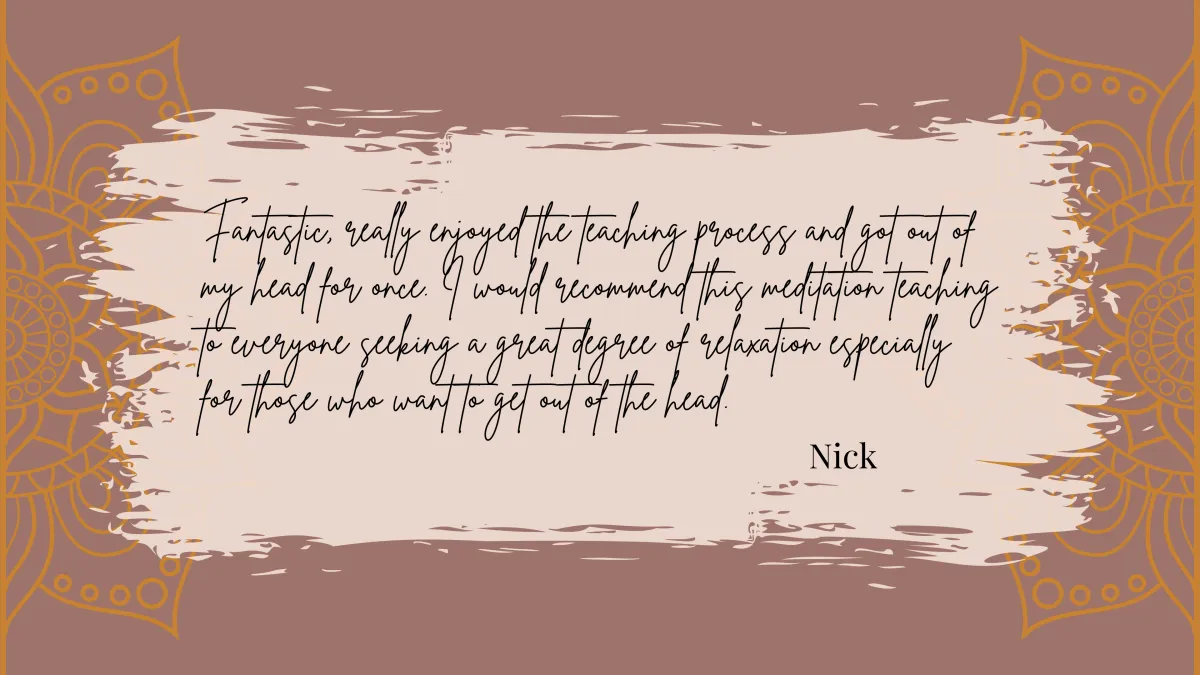 Fantastic, really enjoyed the teaching process and got out of
my head for once. I would recommend this meditation teaching
to everyone seeking a great degree of relaxation especially
for those who want to get out of the head.
Nick